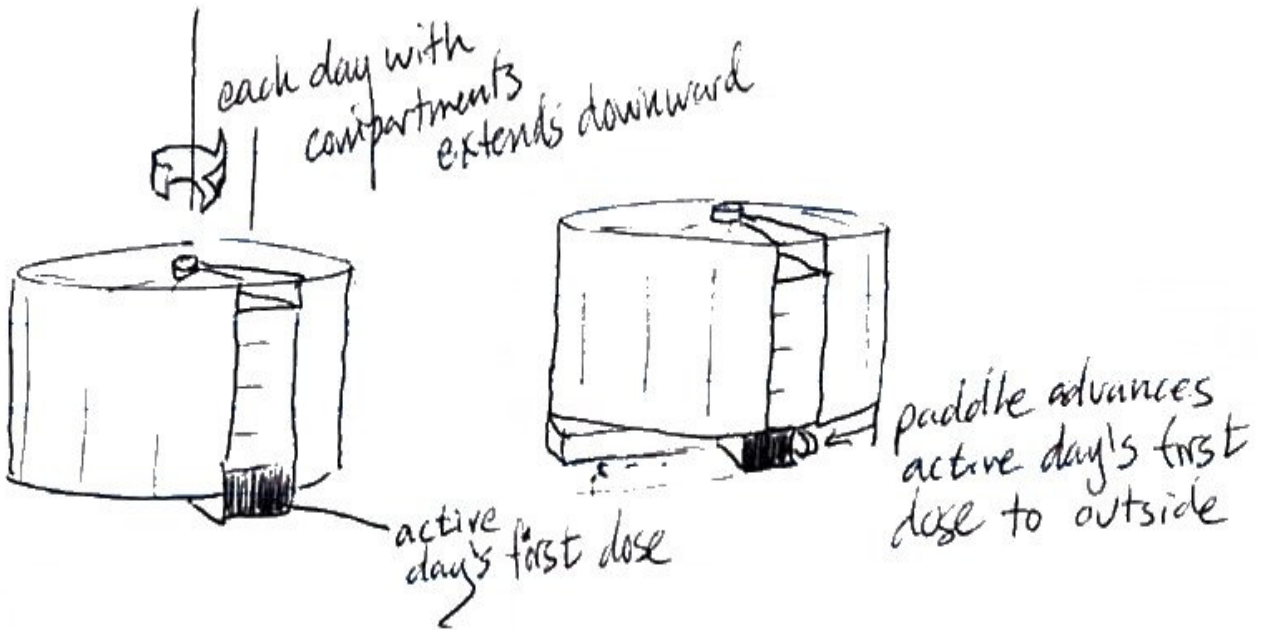 each day with
compartments
extends downward
active
day's first dose
paddle advances
active day's first
dose to outside